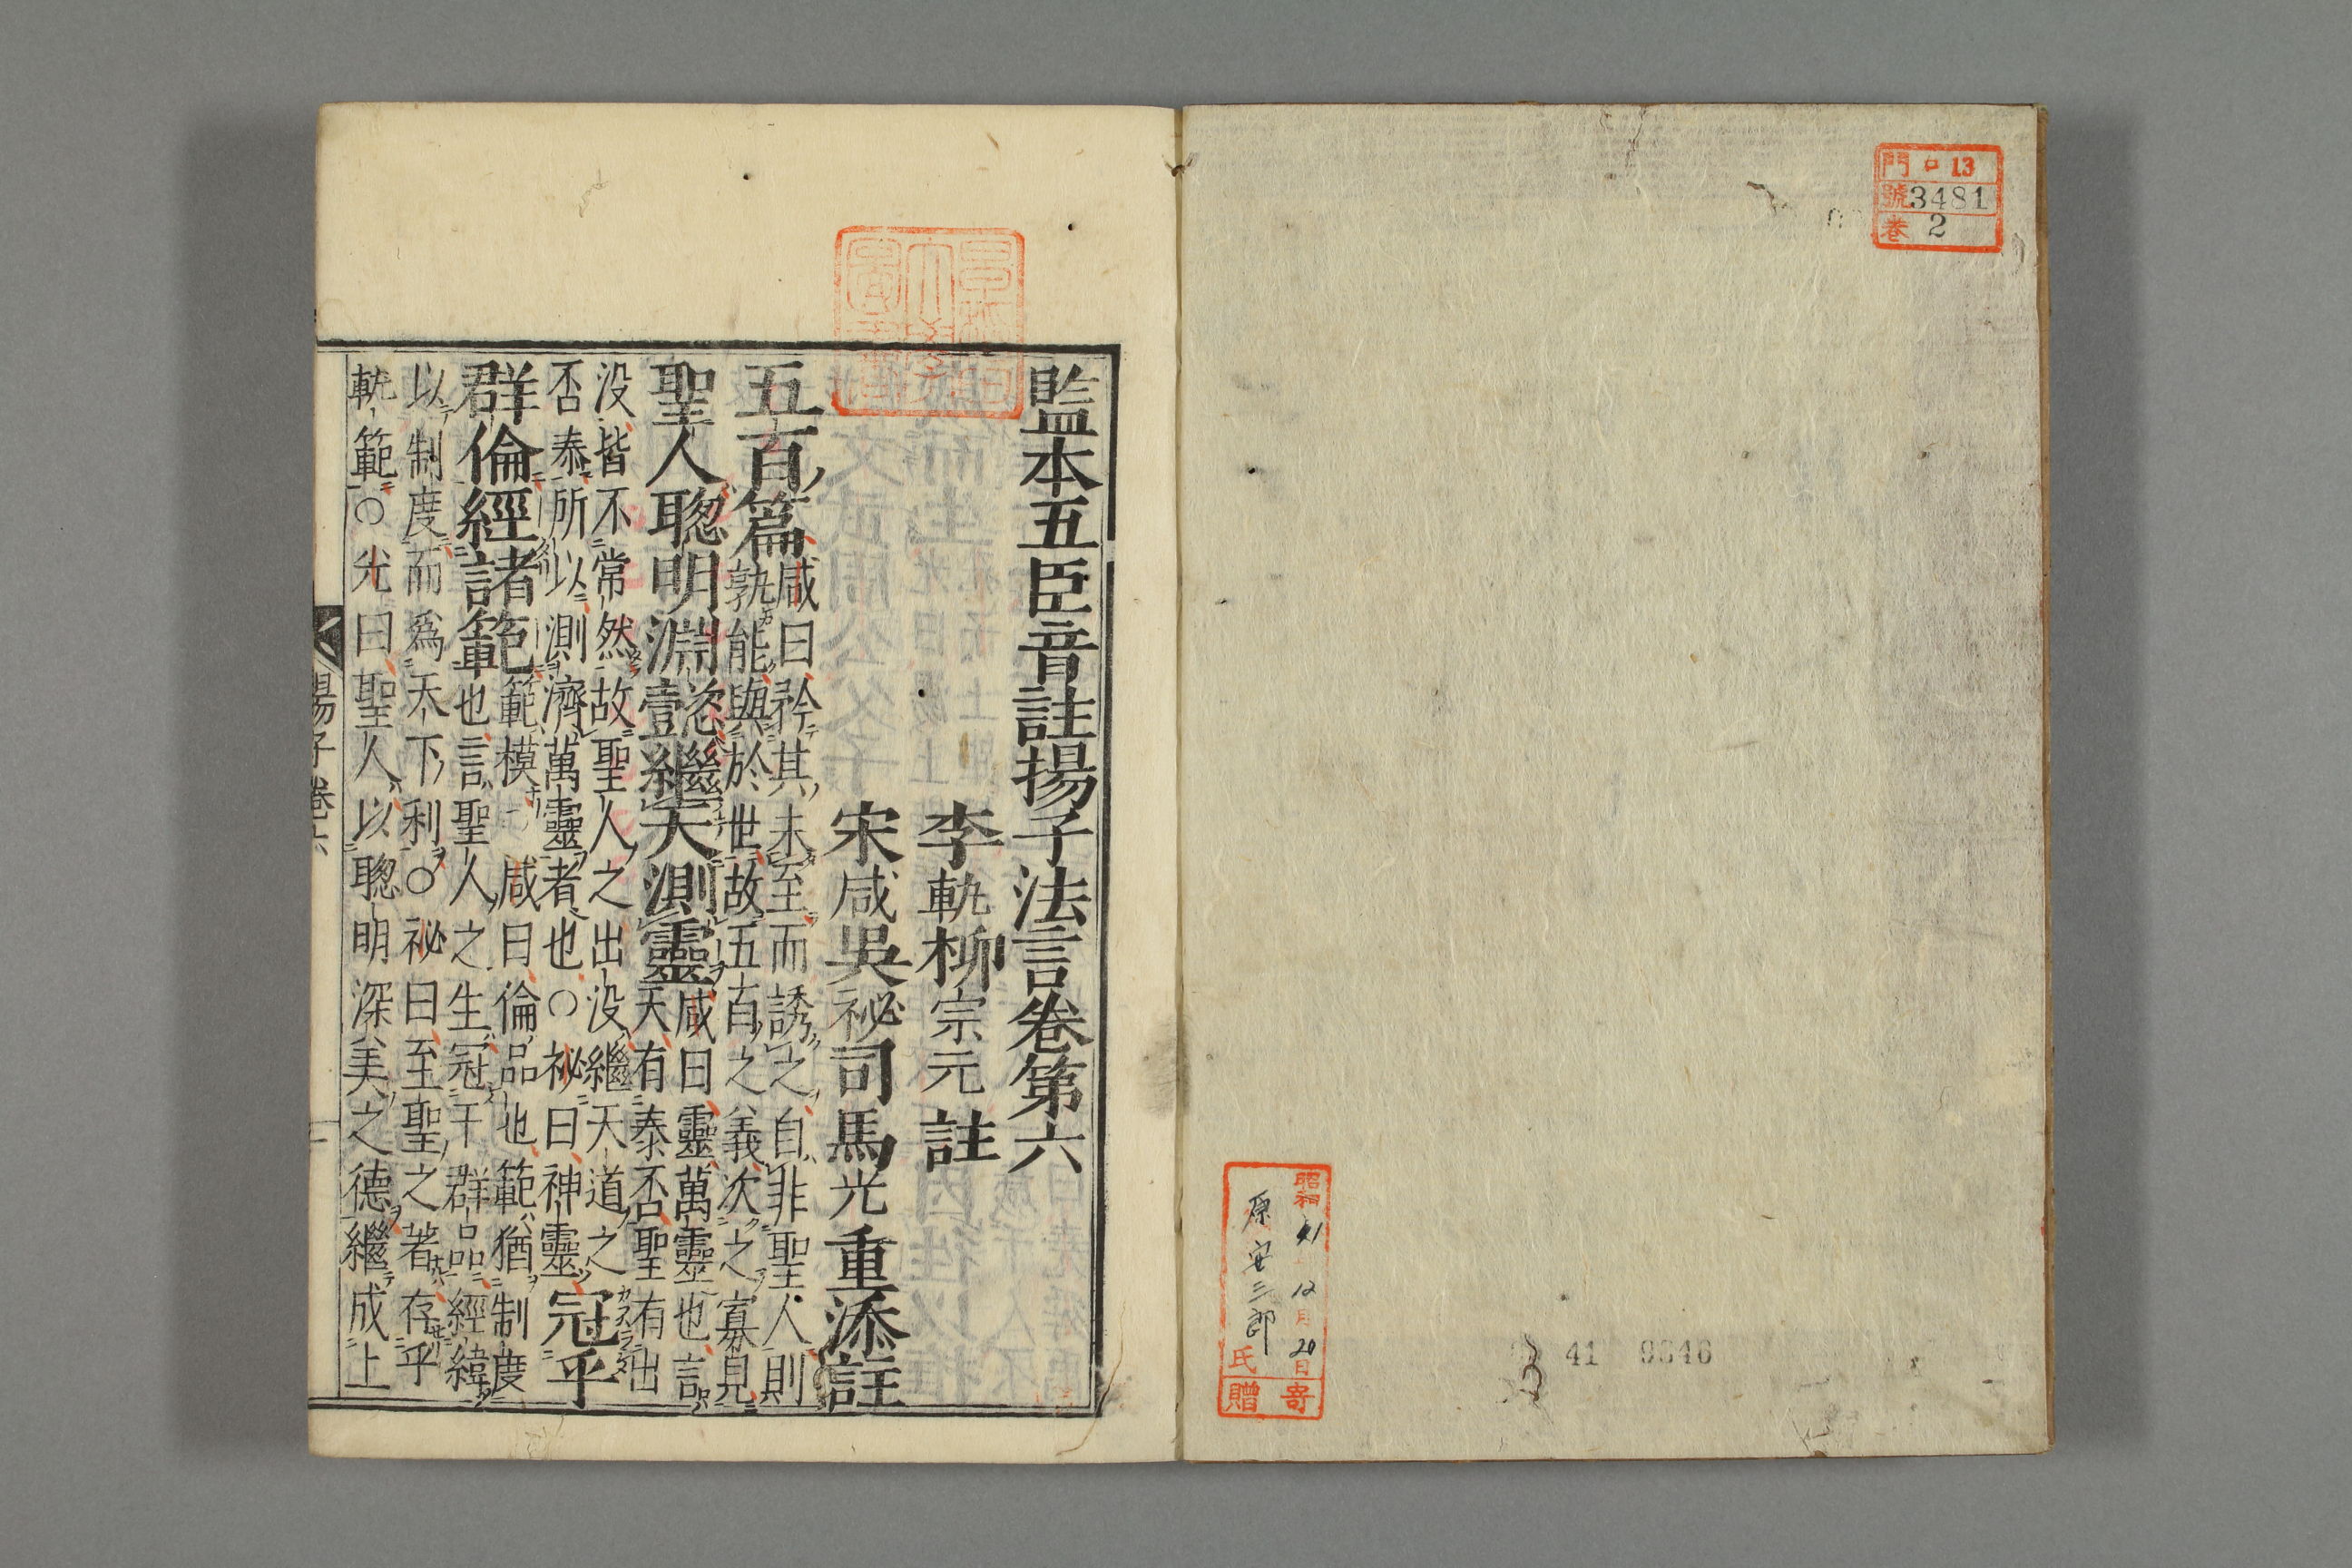 門 ロ 13
號 3481
巻 2
昭和 41 12月 20日
原安三郎氏
寄贈
41 9646
監本五臣音註揚子法言卷第六
李軌柳宗元註
宋咸吳祕司馬光重添註
五百篇咸曰矜其未至而誘之自非聖人則
孰能與於世故五百之義次之寡見
聖人聰明淵懿繼天測靈咸曰靈萬靈也言
天有泰否聖有出
没皆不常然故聖人之出没繼天道之
否泰所以測濟萬靈者也○祕曰神靈冠乎
群倫經諸範範模也咸曰倫品也範猶制度
也言聖人之生冠于群品經緯
以制度而爲天下利○祕曰至聖之著存乎
軌範○光曰聖人以聰明深美之德繼成上
揚子卷六
一